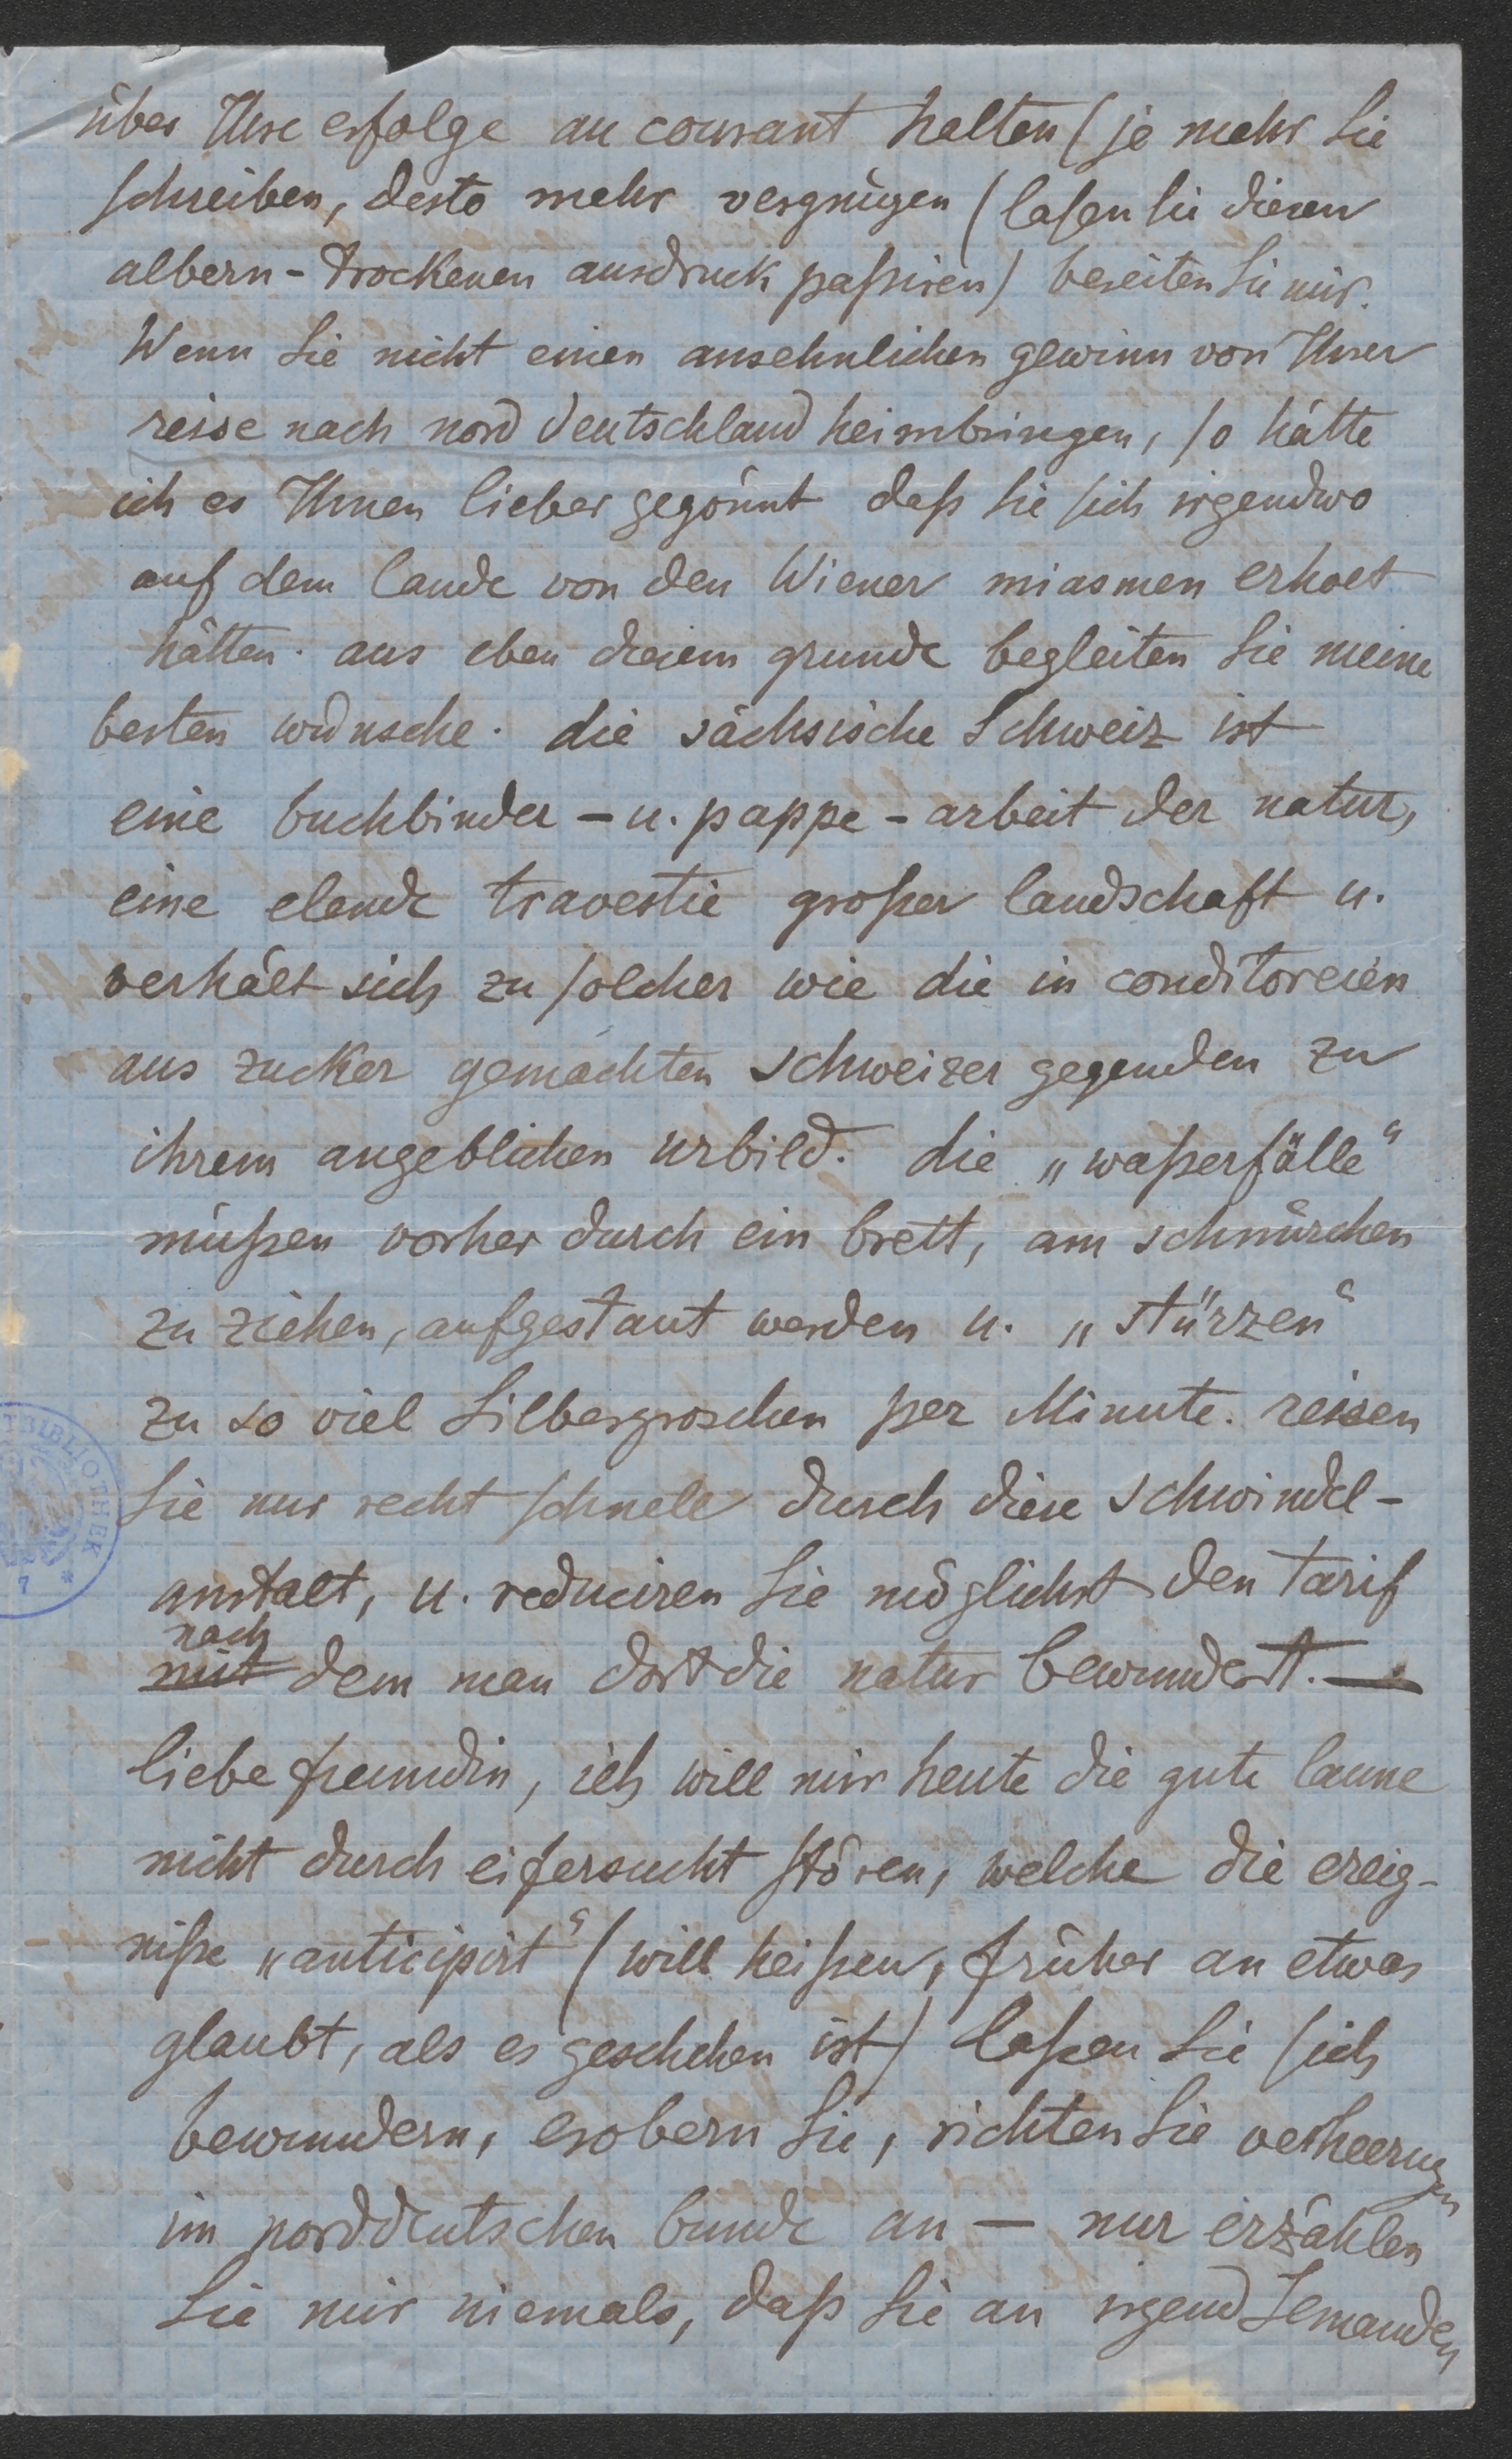 über Ihre erfolge au courant halten (je mehr Sie
schreiben, desto mehr vergnügen (laßen Sie diesen
albern-trockenen ausdruck paßiren) bereiten Sie mir.
Wenn Sie nicht einen ansehnlichen gewinn von Ihrer
reise nach nord deutschland heimbringen, so hätte
ich es Ihnen lieber gegönnt daß Sie sich irgendwo
auf dem lande von den Wiener miasmen erholt
hätten. aus eben diesem grunde begleiten Sie meine
besten wünsche. die sächsische Schweiz ist
eine buchbinder-u. pappe-arbeit der natur,
eine elende travestie großer landschaft u.
verhält sich zu solcher wie die in conditoreien
aus zucker gemachten schweizer gegenden zu
ihrem angeblichen urbild. die „waßerfälle“
müßen vorher durch ein brett, am schnürchen
zu ziehen, aufgestaut werden u. „stürzen“
zu so viel Silbergroschen per Minute. reisen
Sie nur recht schnell durch diese schwindel-
anstalt, u. reduciren Sie möglichst den tarif
nach
mit dem man dort die natur bewundert. —
liebe freundin, ich will mir heute die gute laune
nicht durch eifersucht stören, welche die ereig-
niße „anticipirt“ (will heißen, früher an etwas
glaubt, als es geschehen ist) laßen Sie sich
bewundern, erobern Sie, richten Sie verheerungen
im norddeutschen bunde an — nur erzählen
Sie mir niemals, daß Sie an irgend Jemanden
BIBLIOTHEK
7 *